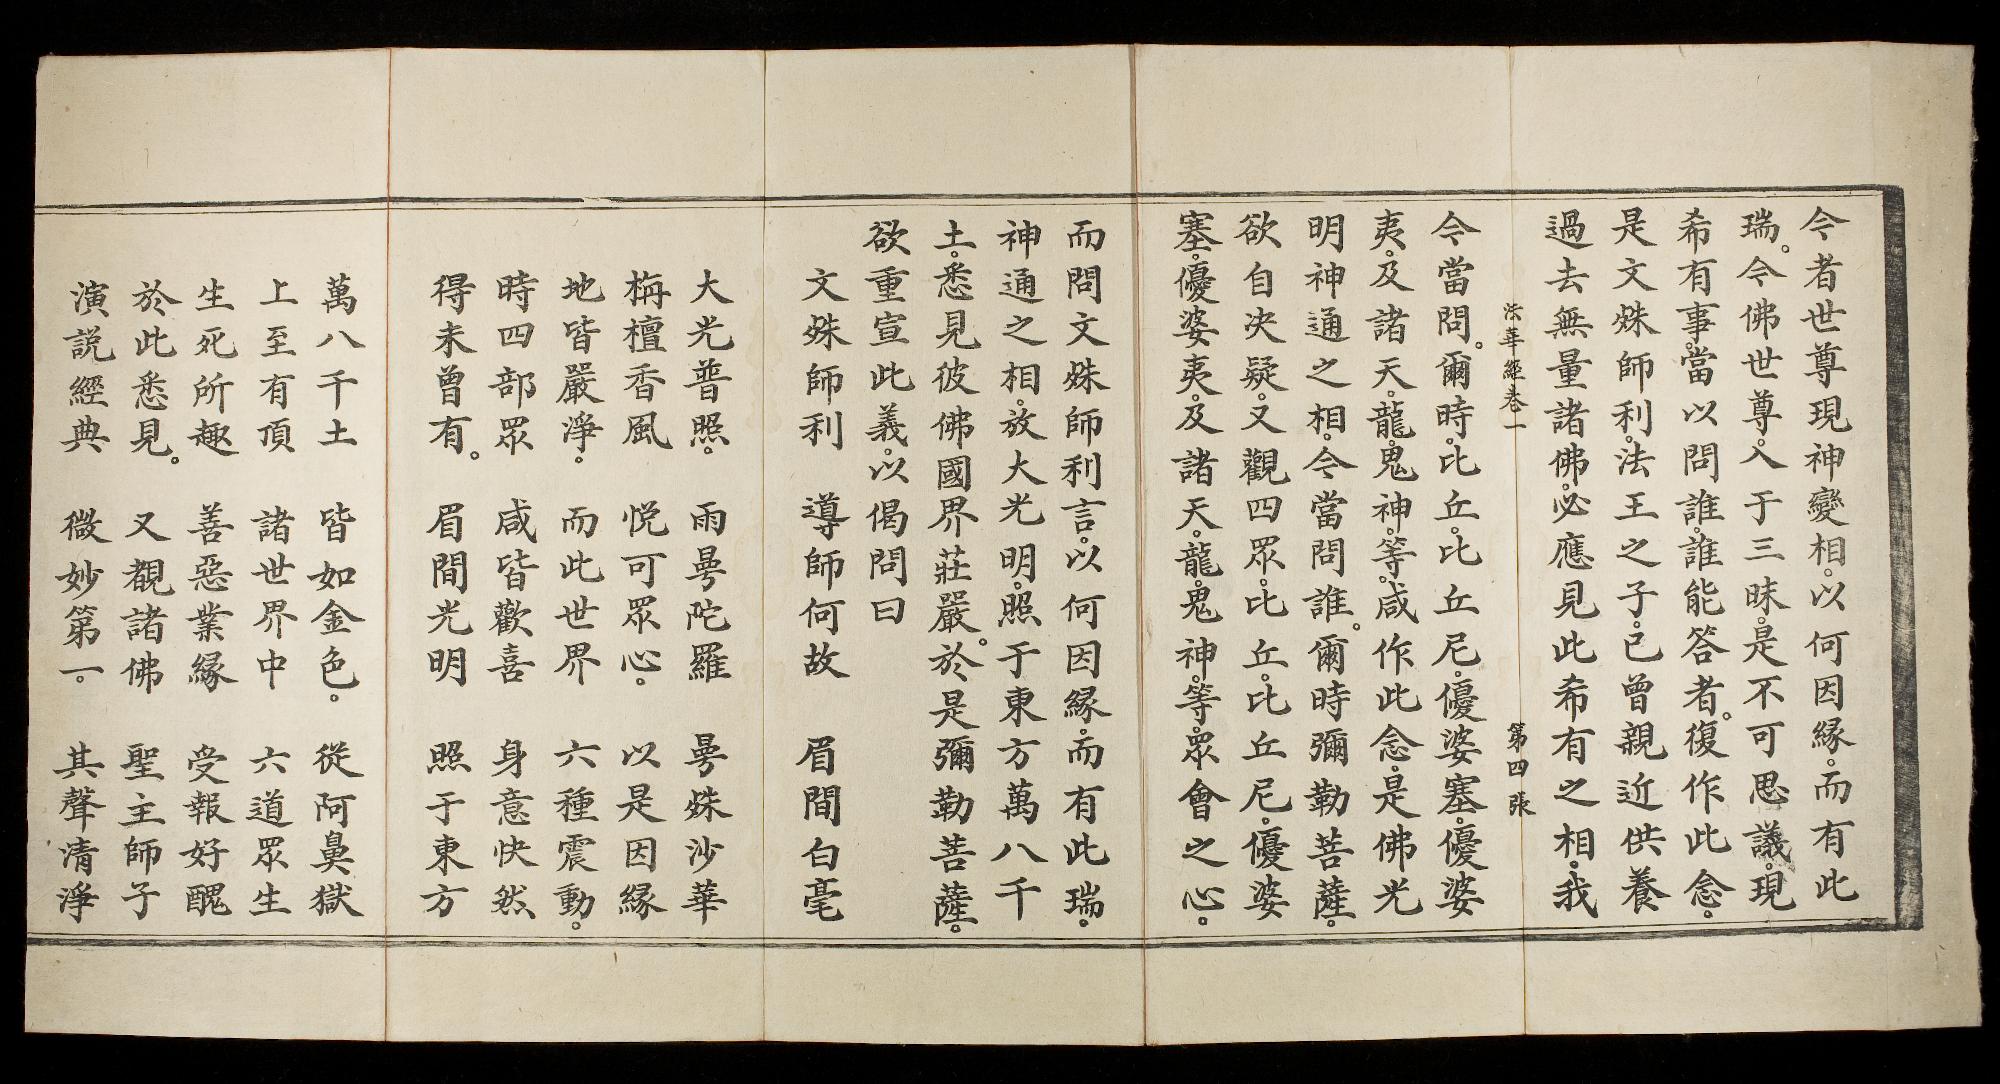 今者世尊現神變相。以何因緣。而有此
瑞。今佛世尊。入于三昧。是不可思議。現
希有事。當以問誰。誰能答者。復作此念。
是文殊師利。法王之子。已曾親近供養
過去無量諸佛。必應見此希有之相。我
法華經卷一 第四張
今當問。爾時。比丘。比丘尼。優婆塞。優婆
夷。及諸天。龍。鬼神。等。咸作此念。是佛光
明神通之相。今當問誰。爾時彌勒菩薩。
欲自決疑。又觀四眾。比丘。比丘尼。優婆
塞。優婆夷。及諸天。龍。鬼神。等。眾會之心。
而問文殊師利言。以何因緣。而有此瑞。
神通之相。放大光明。照于東方萬八千
土。悉見彼佛國界莊嚴。於是彌勒菩薩。
欲重宣此義。以偈問曰
文殊師利 導師何故 眉間白毫
大光普照。 雨曼陀羅 曼殊沙華
栴檀香風 悅可眾心。 以是因緣
地皆嚴淨。 而此世界 六種震動。
時四部眾 咸皆歡喜 身意快然
得未曾有。 眉間光明 照于東方
萬八千土 皆如金色。 從阿鼻獄
上至有頂 諸世界中 六道眾生
生死所趣 善惡業緣 受報好醜
於此悉見。 又覩諸佛 聖主師子
演說經典 微妙第一。 其聲清淨